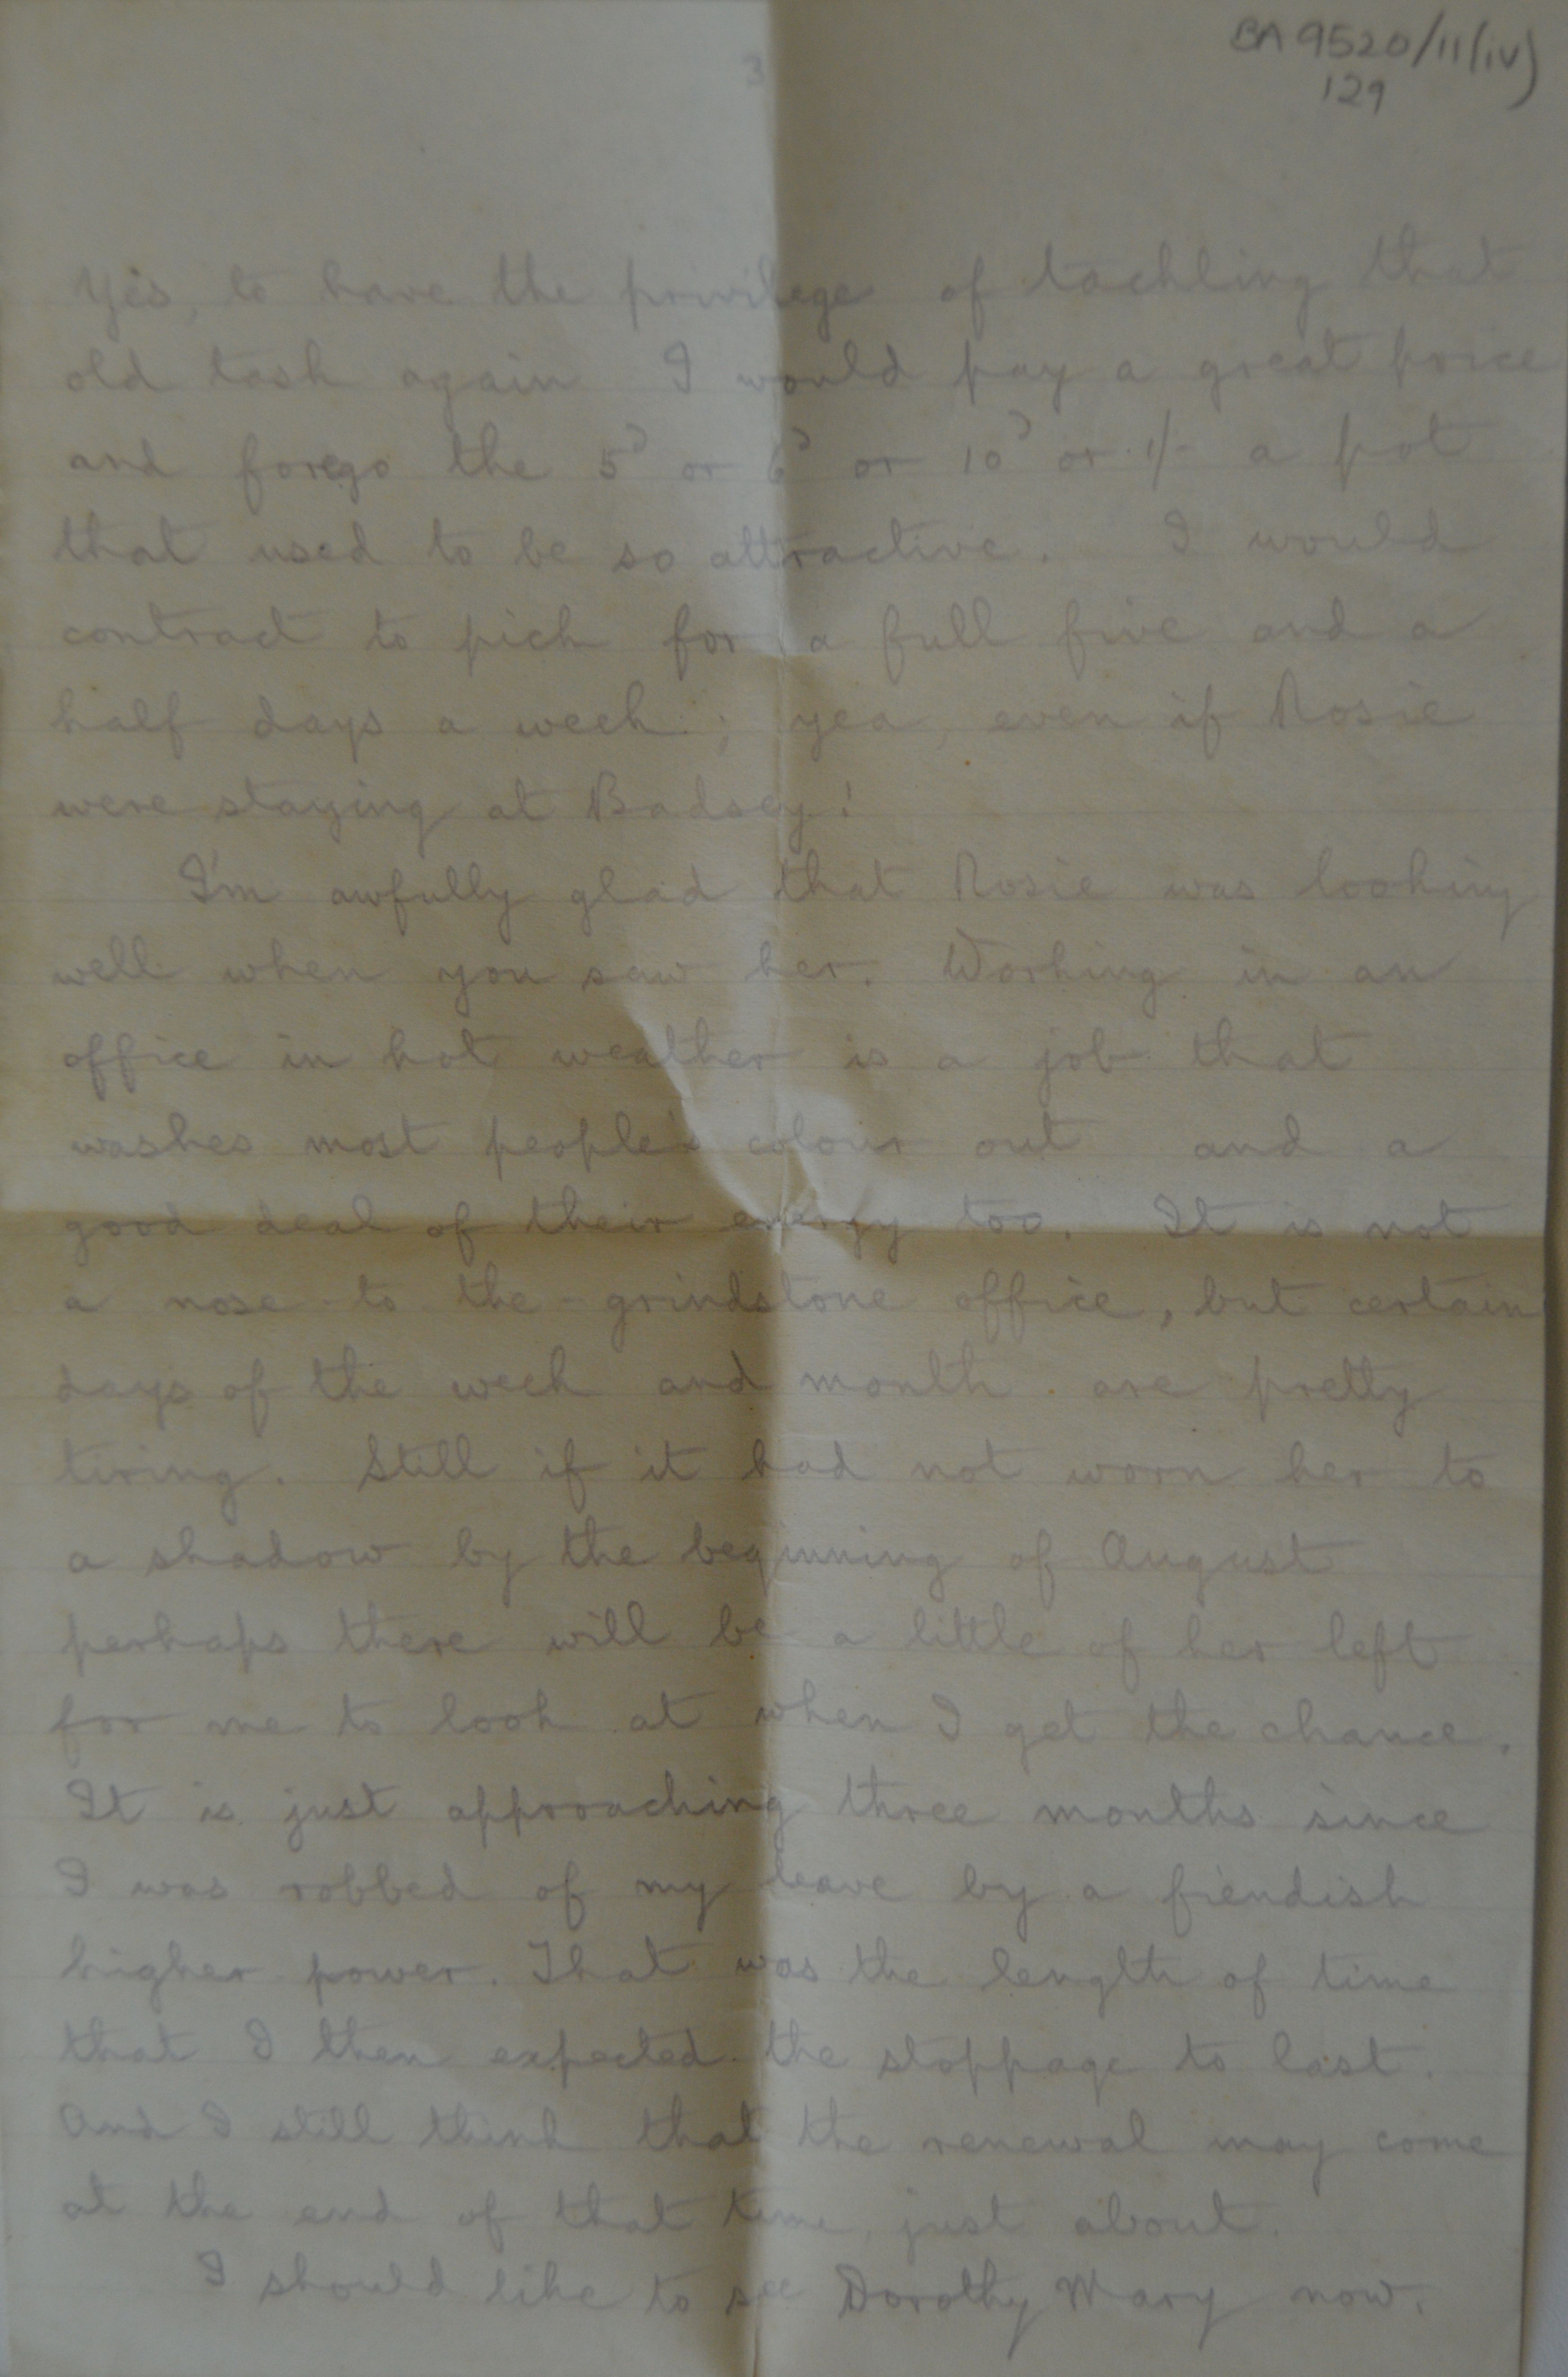 BA 9520/11(iv)
129
3
Yes, to have the privilege of tackling that
old task again I would pay a great price
and forego the 5d or 6d or 10d or 1/- a pot
that used to be so attractive. I would
contract to pick for a full five and a
half days a week; yea, even if Rosie
were staying at Badsey!
I'm awfully glad that Rosie was looking
well when you saw her. Working in an
office in hot weather is a job that
washes most people's colour out and a
good deal of their energy too. It is not
a nose-to-the-grindstone office, but certain
days of the week and month are pretty
tiring. Still if it had not worn her to
a shadow by the beginning of August
perhaps there will be a little of her left
for me to look at when I get the chance.
It is just approaching three months since
I was robbed of my leave by a fiendish
higher power. That was the length of time
that I then expected the stoppage to last.
And I still think that the renewal may come
at the end of that time, just about.
I should like to see Dorothy Mary now.